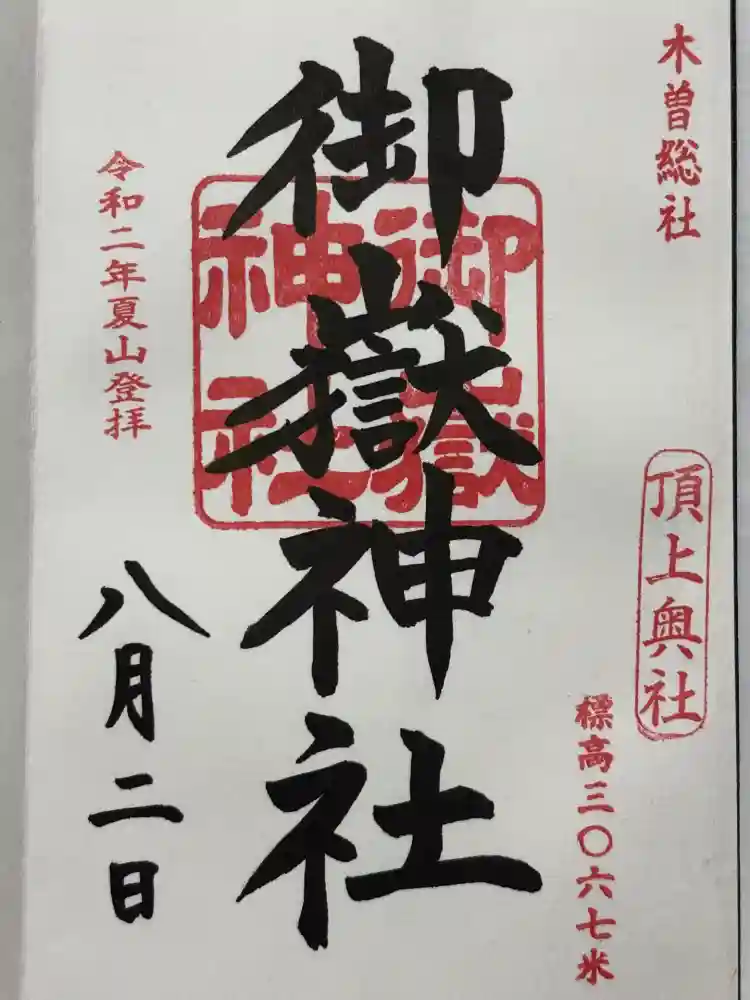 木曽総社
頂上奥社
標高三〇六七米
御嶽神社
御嶽
神社
令和二年夏山登拝
八月二日